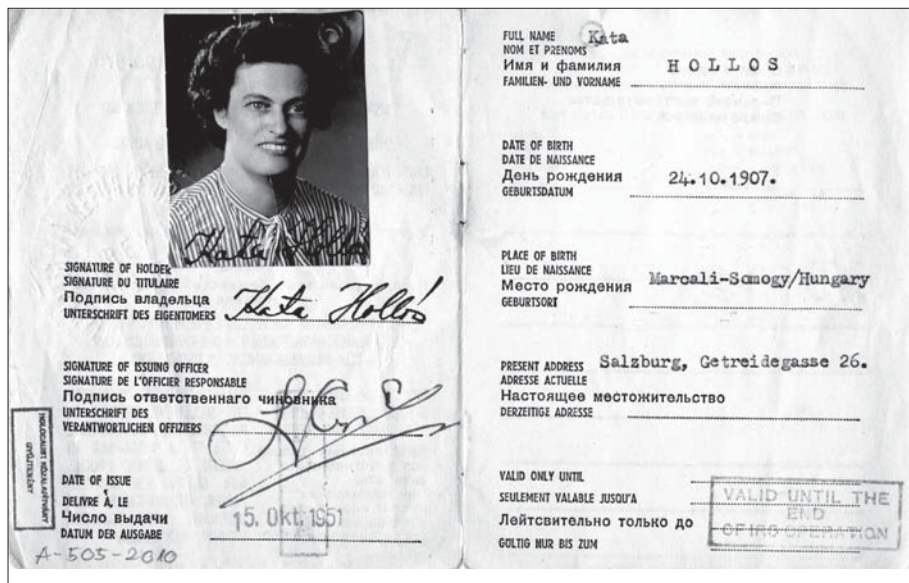 Kata Hollós
SIGNATURE OF HOLDER
SIGNATURE DU TITULAIRE
Подпись владельца
UNTERSCHRIFT DES EIGENTÜMERS Kata Hollós
SIGNATURE OF ISSUING OFFICER
SIGNATURE DE L'OFFICIER RESPONSABLE
Подпись ответственнаго чиновника
UNTERSCHRIFT DES
VERANTWORTLICHEN OFFIZIERS
HOLOCAUST KÖZALAPÍTVÁNY
GYŰJTEMÉNY
DATE OF ISSUE
DELIVRE À, LE
Число выдачи
DATUM DER AUSGABE 15. Okt. 1951
A-505-2010
FULL NAME Kata
NOM ET PRENOMS
Имя и фамилия HOLLOS
FAMILIEN- UND VORNAME
DATE OF BIRTH
DATE DE NAISSANCE
День рождения 24.10.1907.
GEBURTSDATUM
PLACE OF BIRTH
LIEU DE NAISSANCE
Место рождения Marcali-Somogy/Hungary
GEBURTSORT
PRESENT ADDRESS Salzburg, Getreidegasse 26.
ADRESSE ACTUELLE
Настоящее местожительство
DERZEITIGE ADRESSE
VALID ONLY UNTIL
SEULEMENT VALABLE JUSQU'A
Лейтсвительно только до
GÜLTIG NUR BIS ZUM
VALID UNTIL THE
END
OF IRO OPERATION